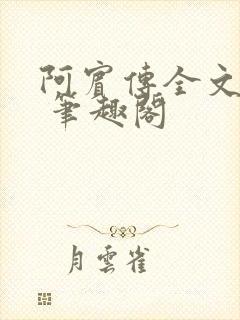 阿賓傳全文
筆趣閣
月雲雀